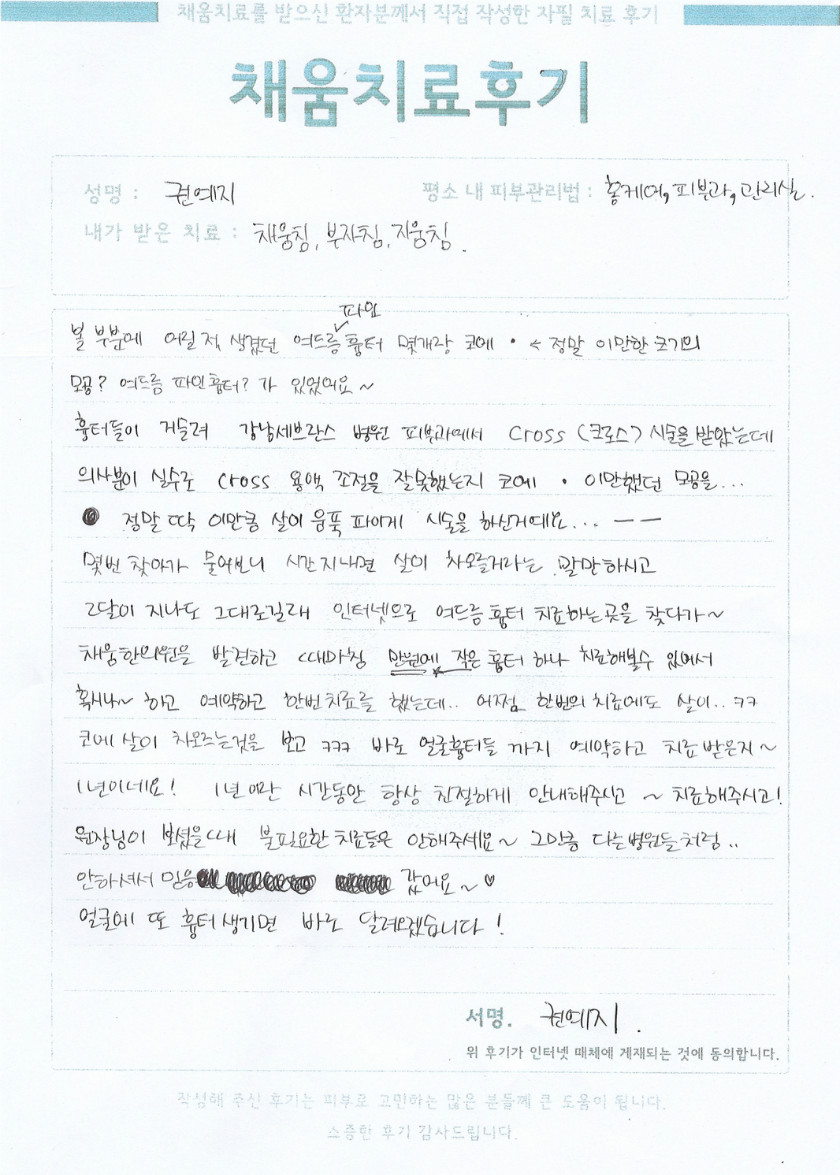 채움치료를 받으신 환자분께서 직접 작성한 자필 치료 후기
채움치료후기
성명 : 권예지 평소 내 피부관리법 : 홈케어, 피부과, 관리실.
내가 받은 치료 : 채움침, 부자침, 지움침.
파인
볼 부분에 어릴 적 생겼던 여드름 흉터 몇개랑 코에 • ← 정말 이만한 크기의
모공? 여드름 파인흉터? 가 있었어요 ~
흉터들이 거슬려 강남세브란스 병원 피부과에서 Cross (크로스) 시술을 받았는데
의사분이 실수로 Cross 용액 조절을 잘못했는지 코에 • 이만했던 모공을...
● 정말 딱 이만큼 살이 움푹 파이게 시술을 하신거예요... ㅡㅡ
몇번 찾아가 물어보니 시간지나면 살이 차오를거라는 말만하시고
2달이 지나도 그대로길래 인터넷으로 여드름 흉터 치료하는곳을 찾다가~
채움한의원을 발견하고 때마침 만원에 작은 흉터 하나 치료해볼수 있어서
혹시나~ 하고 예약하고 한번치료를 했는데.. 어쩜 한번의 치료에도 살이.. ㅋㅋ
코에 살이 차오르는것을 보고 ㅋㅋㅋ 바로 얼굴흉터들 까지 예약하고 치료받은지~
1년이네요! 1년 여만 시간동안 항상 친절하게 안내해주시고 ~ 치료해주시고!
원장님이 보셨을때 불필요한치료들은 안해주세요~ 그만큼 다른병원들처럼..
안하셔서 믿음 갔어요~♡
얼굴에 또 흉터생기면 바로 달려오겠습니다!
서명. 권예지.
위 후기가 인터넷 매체에 게재되는 것에 동의합니다.
작성해 주신 후기는 피부로 고민하는 많은 분들께 큰 도움이 됩니다.
소중한 후기 감사드립니다.